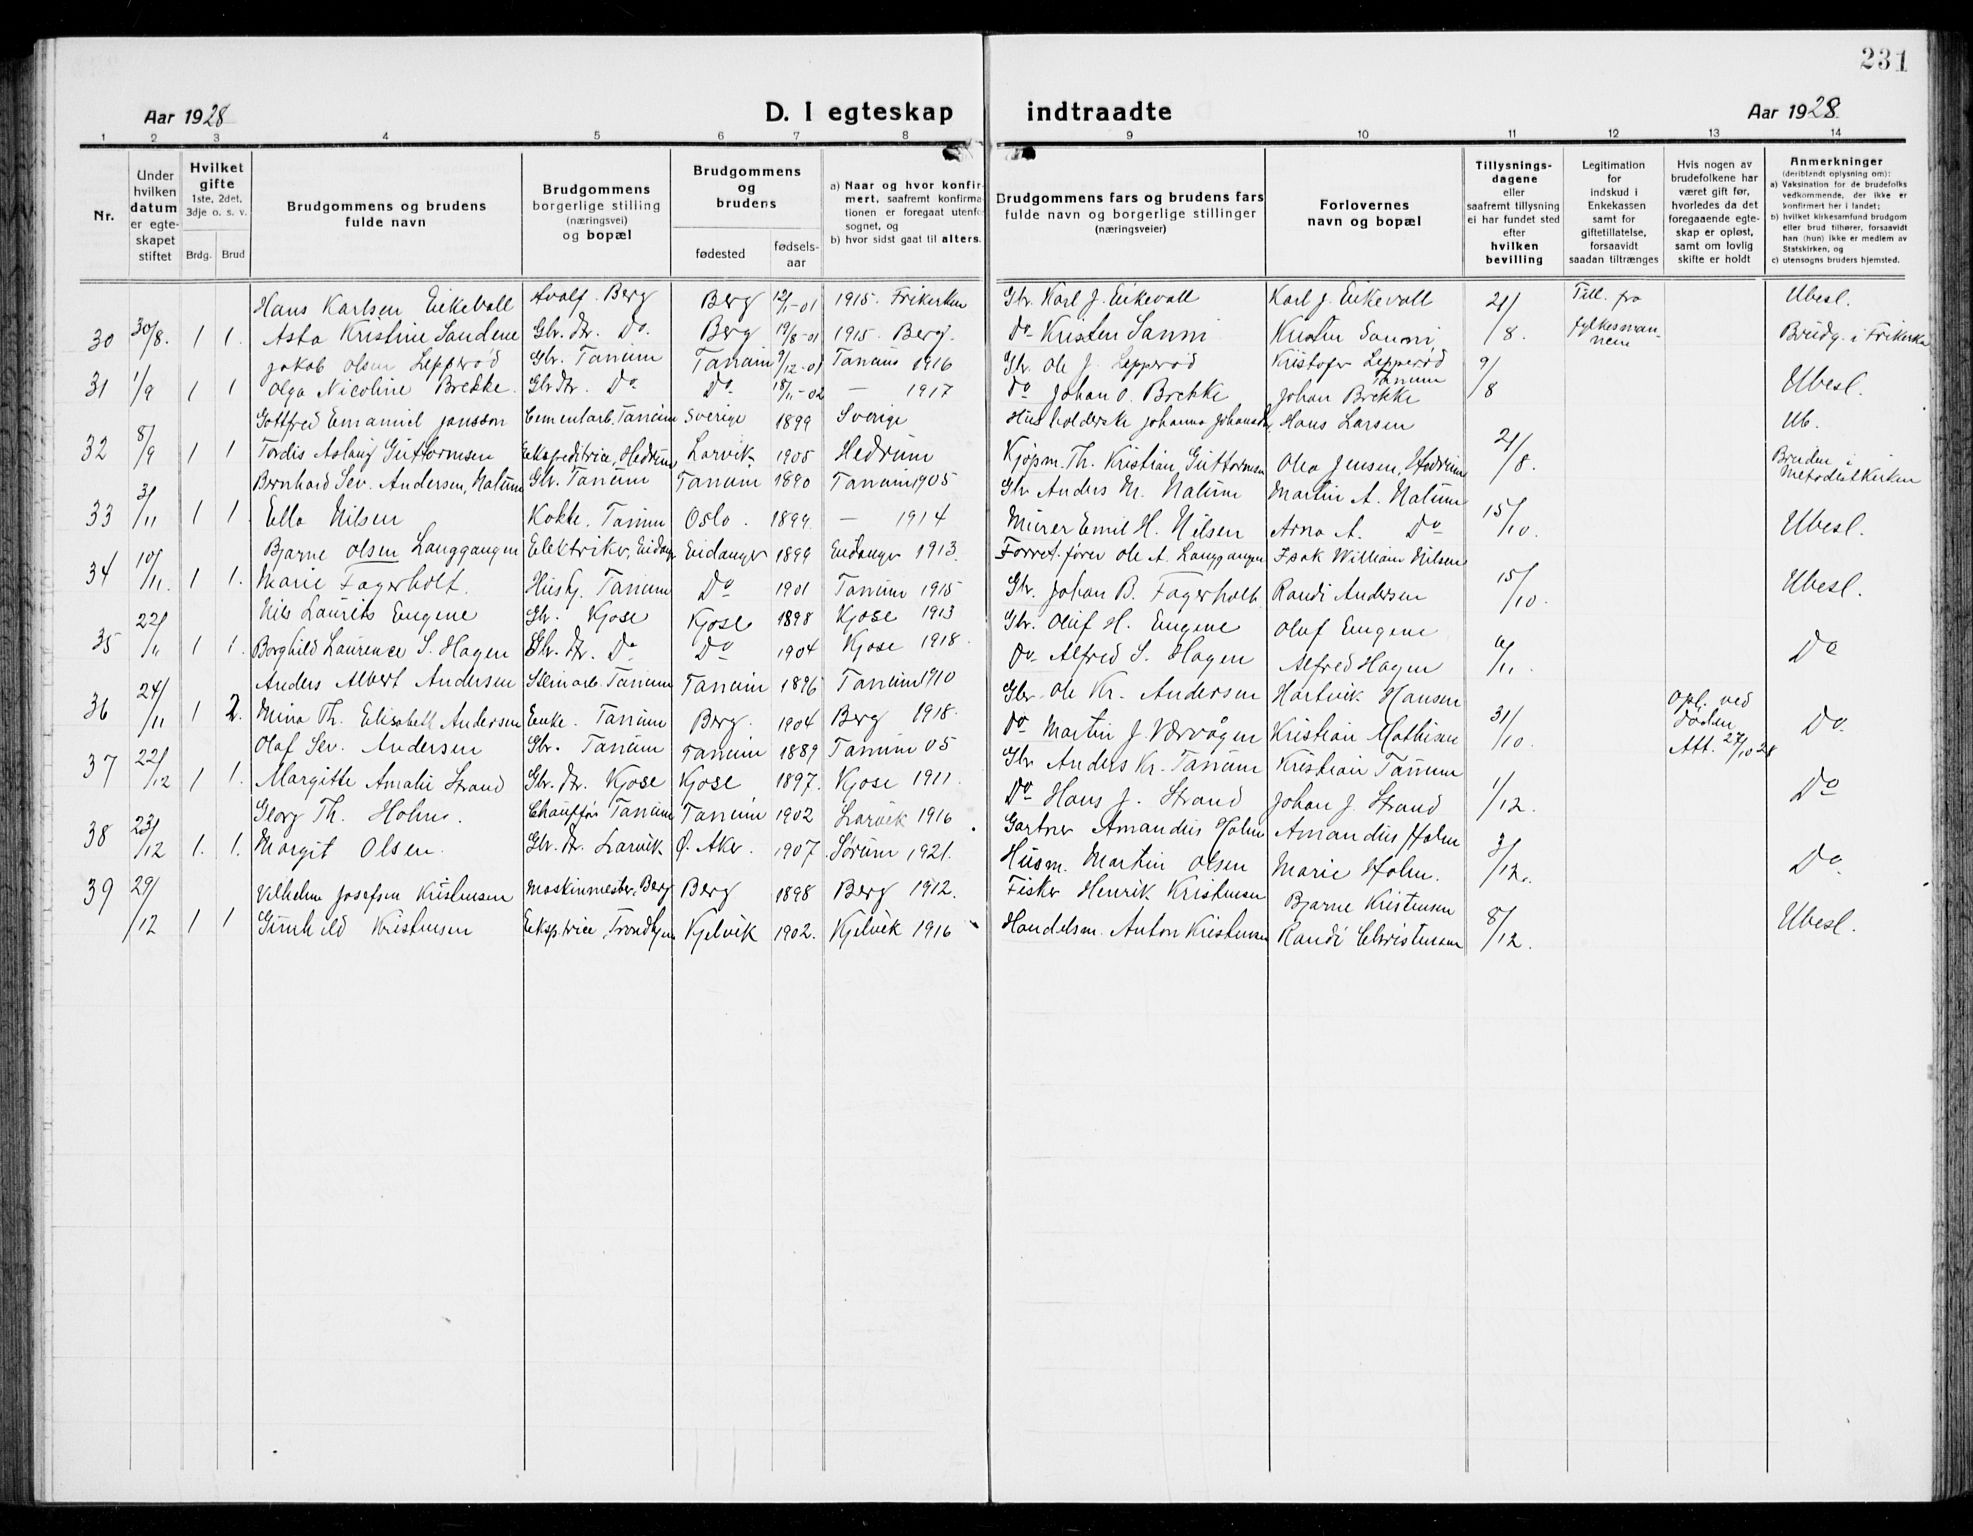 231
Aar 1928 D. I egteskap indtraadte Aar 1928
1 2 3 4 5 6 7 8 9 10 11 12 13 14
Nr.
Under hvilken datum er egteskapet stiftet
Hvilket gifte 1ste, 2det, 3dje o. s. v.
Brdg. Brud
Brudgommens og brudens fulde navn
Brudgommens borgerlige stilling (næringsvei) og bopæl
Brudgommens og brudens
fødested fødselsaar
a) Naar og hvor konfirmert, saafremt konfirmationen er foregaat utenfor sognet, og
b) hvor sidst gaat til alters.
Brudgommens fars og brudens fars fulde navn og borgerlige stillinger (næringsveier)
Forlovernes navn og bopæl
Tillysningsdagene eller saafremt tillysning ei har fundet sted efter hvilken bevilling
Legitimation for indskud i Enkekassen samt for giftetillatelse, forsaavidt saadan tiltrænges
Hvis nogen av brudefolkene har været gift før, hvorledes da det foregaaende egteskap er opløst, samt om lovlig skifte er holdt
Anmerkninger
(deriblandt oplysning om):
a) Vaksination for de brudefolks vedkommende, der ikke er konfirmert her i landet;
b) hvilket kirkesamfund brudgom eller brud tilhører, forsaavidt han (hun) ikke er medlem av Statskirken, og
c) utensogns bruders hjemsted.
Hans Karlsen Eikevall Berg Berg 12/1-01 1915. Frikirken Gbr. Karl J. Eikevall Karl J. Eikevall 21/8. Till. fra fylkesmannen Ubesl.
30 30/8. 1 1. Asta Kristine Sandene Gbr. dr. Do. Berg 19/8-01 1915. Berg. Do Kristen Sanni Kristen Sanni Brudg. i Frikirken
Jakob Olsen Lepperød Gbr. Tanum Tanum 9/12-01 Tanum 1916 Gbr. Ole J. Lepperød Kristofer Lepperød Tanum 9/8
31 1/9 1 1 Olga Nicoline Brekke. Gbr. dr. Do Do 18/11-02 — 1917 Do Johan O. Brekke Johan Brekke Ubesl.
Gottfred Emanuel Jansson Cementarb. Tanum Sverige 1899 Sverige Husholderske Johanna Hans Larsen 21/8. Ub.
32 8/9 1 1 Tordis Aslaug Guttormsen Ekspeditrice, Hedrum Larvik 1905 Hedrum Kjøpm. Th. Kristian Guttormsen Olea Jensen, Hedrum Bruden i Metodistkirken
Bernhard Sev. Andersen, Nalum Gbr. Tanum Tanum 1890 Tanum 1905 Gbr Anders M. Nalum Martin A. Nalum 15/10.
33 3/11 1 1. Ella Nilsen Kokke. Tanum Oslo. 1899. — 1914 Murer Emil H. Nilsen Arna A. Do Ubesl.
Bjarne Olsen Langgangen Elektriker, Eidanger Eidanger 1899 Eidanger 1913. Forret. fører Ole A. Langgangen Isak William Nilsen 15/10.
34 10/11. 1 1. Marie Fagerholt. Husg. Tanum Do 1901 Tanum 1915 Gbr. Johan B. Fagerholt. Randi Andersen Ubesl.
Nils Laurits Eugene Gbr. Kjose Kjose 1898 Kjose 1913 Gbr. Oluf H. Eugene Oluf Eugene
35 22/11 1 1. Borghild Laurence S. Hagen Gbr. dr. Do Do 1904 Kjose 1918. Do. Alfred S. Hagen Alfred Hagen Do
Anders Albert Andersen Stenarb. Tanum Tanum 1896 Tanum 1910 Gbr. Ole Kr. Andersen Hartvik Hansen 31/10. Opl. ved døden Att. 27/10 28
36 24/11 1 2. Mina Th. Elisabeth Andersen Enke. Tanum Berg. 1904 Berg 1918. Do Martin J. Værvågen Kristian Mathisen Do.
Olaf Sev. Andersen Gbr. Tanum Tanum 1889 Tanum 05 Gbr Anders Kr. Tanum Kristian Tanum
37 22/12 1 1. Margitte Amalie Strand Gbr. dr. Kjose Kjose 1897. Kjose 1911. Do Hans J. Strand Johan J. Strand 1/12. Do
Georg Th. Holm. Chauffør Tanum Tanum 1902 Larvik 1916. Gartner Amandus Holm Amandus Holm 3/12.
38 23/12 1. 1. Margit Olsen. Gbr. dr. Larvik Ø. Aker. 1907 Sørum 1921. Husm. Martin Olsen Marie Holm. Do.
39 29/12 1 1 Vilhelm Josefsen Kristensen Maskinmester, Berg Berg 1898 Berg 1912. Fisker Henrik Kristensen Bjarne Kristensen 8/12.
Gunhild Kristensen Eksp.trice, Trondhjem Kjelvik 1902. Kjelvik 1916 Handelsm. Anton Kristensen Randi Christensen Ubesl.